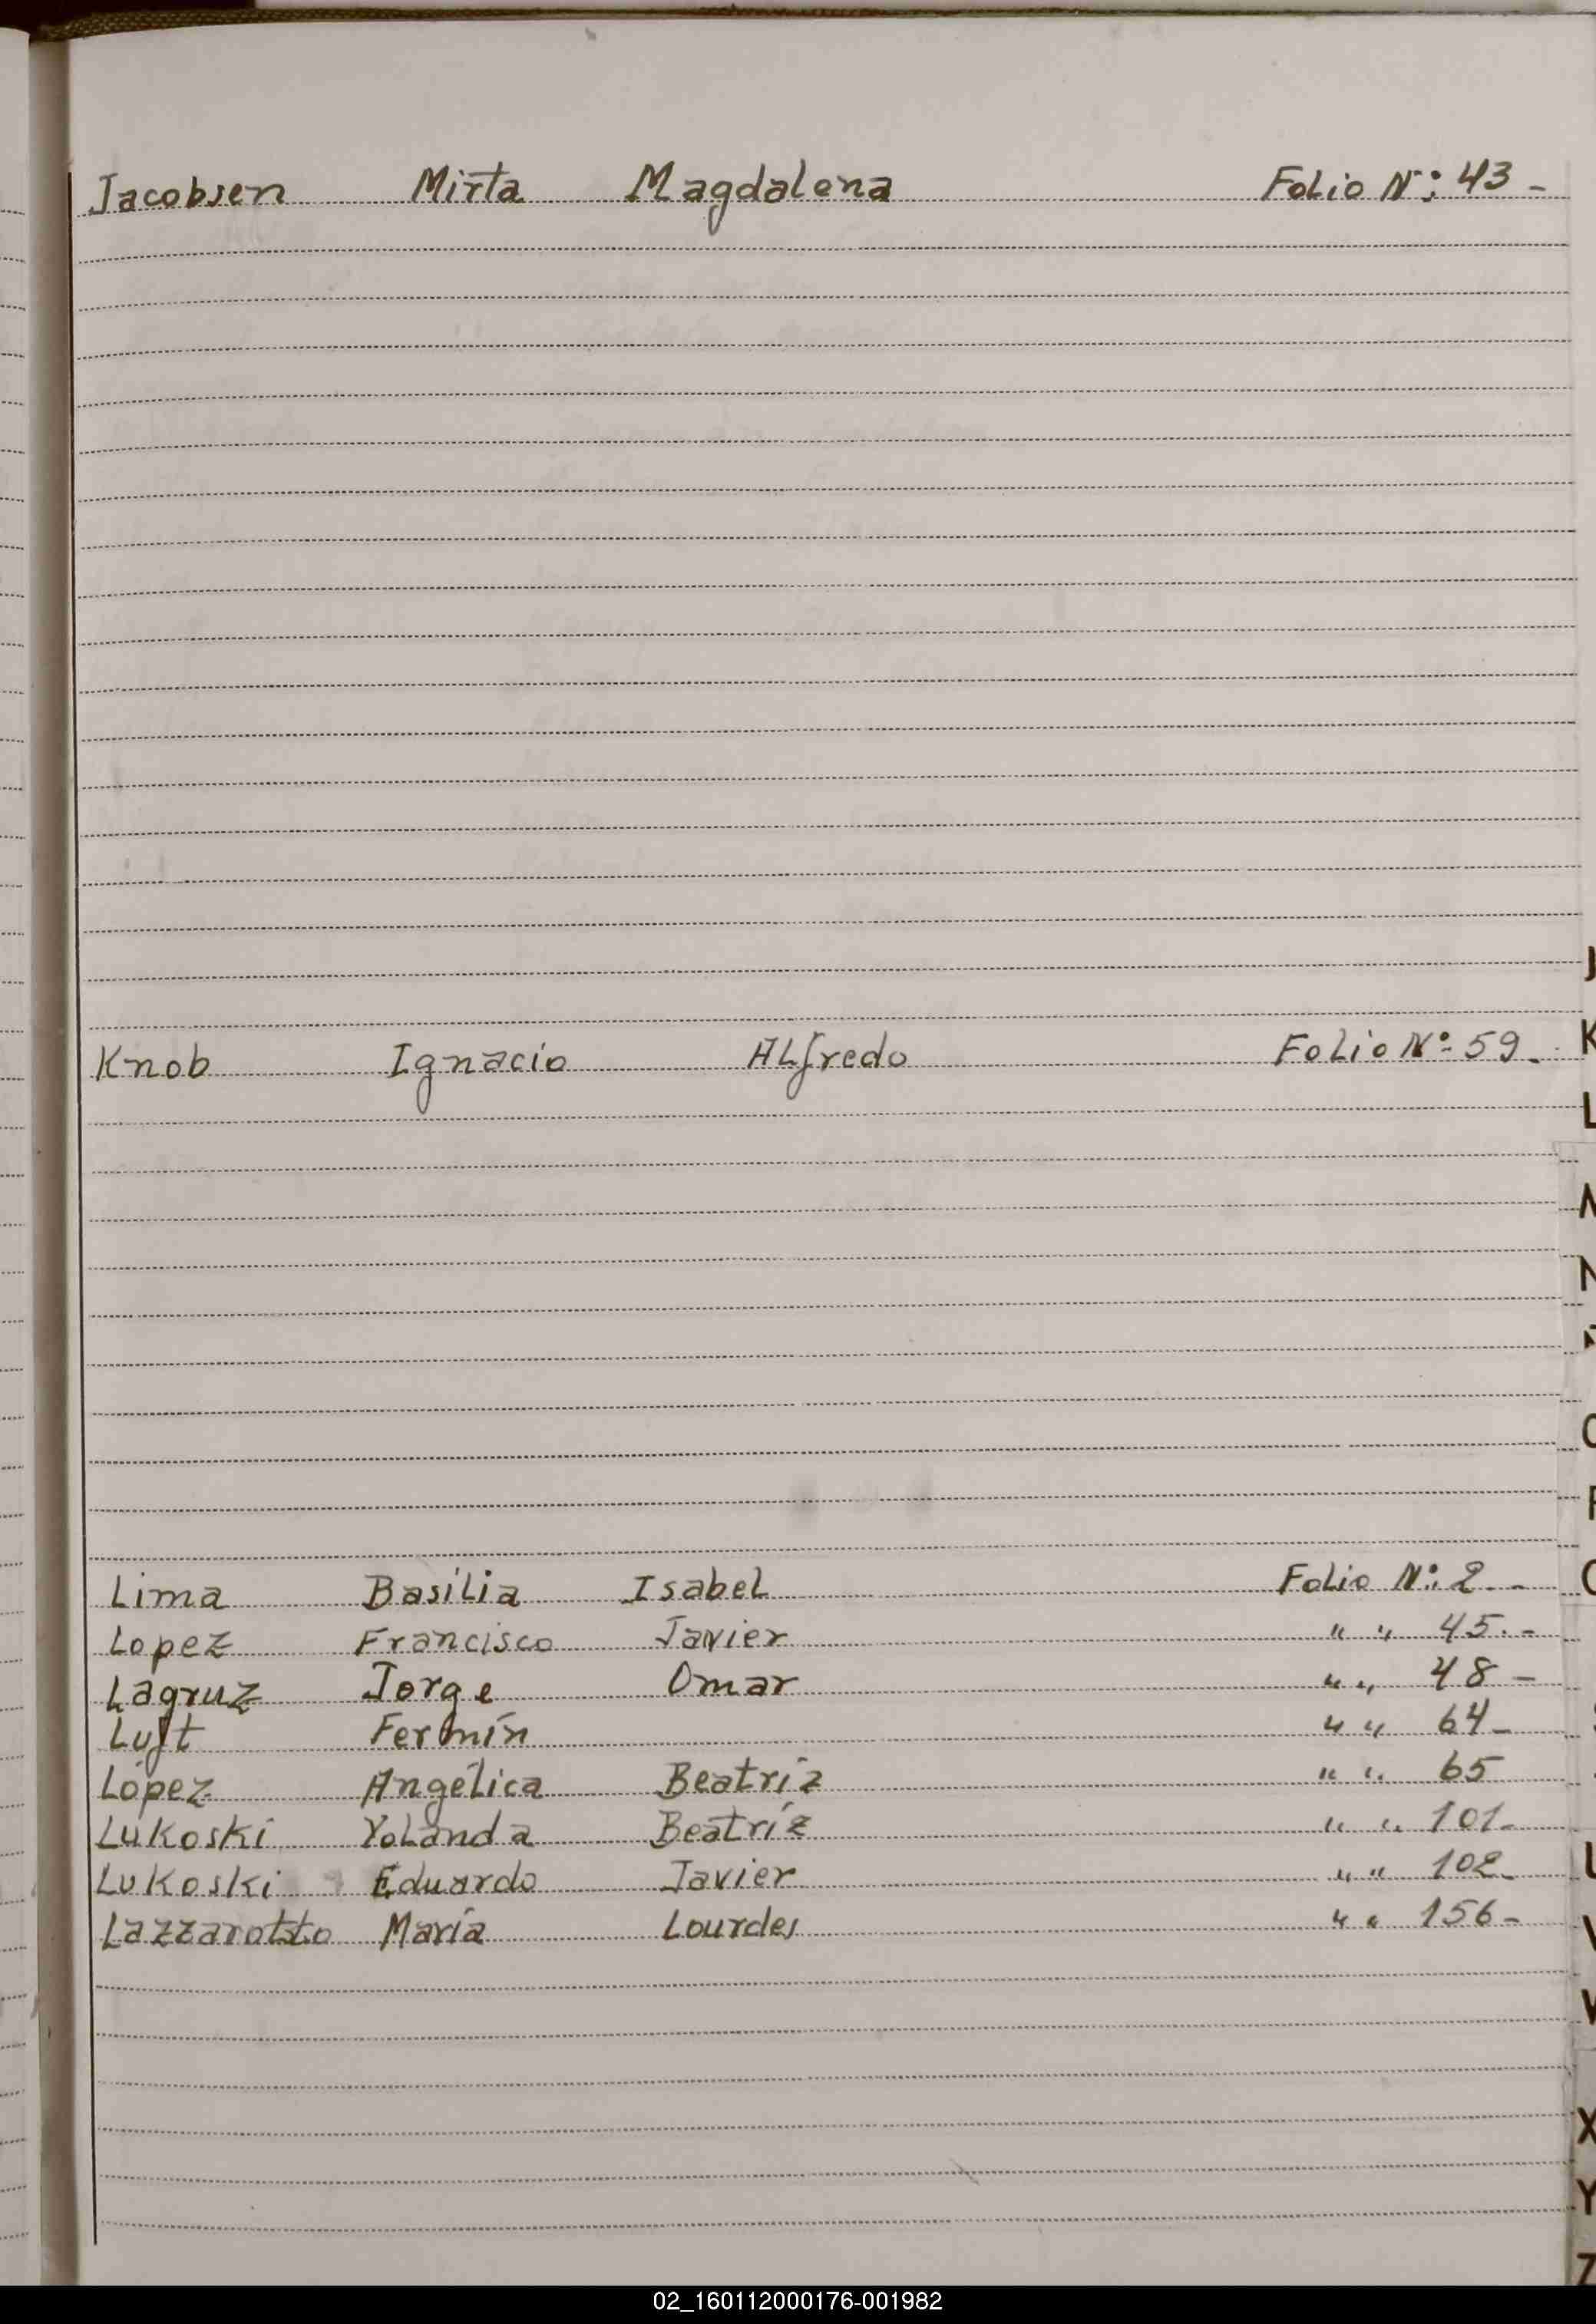 Jacobsen Mirta Magdalena Folio Nº: 43 -
J
Knob Ignacio Alfredo Folio Nº- 59 -
K
L
M
N
O
P
Lima Basilia Isabel Folio Nº: 2 - -
Lopez Francisco Javier " " 45. -
Lagruz Jorge Omar " " 48 -
Luft Fermín " " 64 -
López Angélica Beatriz " " 65
Lukoski Yolanda Beatríz " " 101 -
Lukoski Eduardo Javier " " 102 -
U
Lazzarotto María Lourdes " " 156 -
V
W
X
Y
Z
02_160112000176-001982